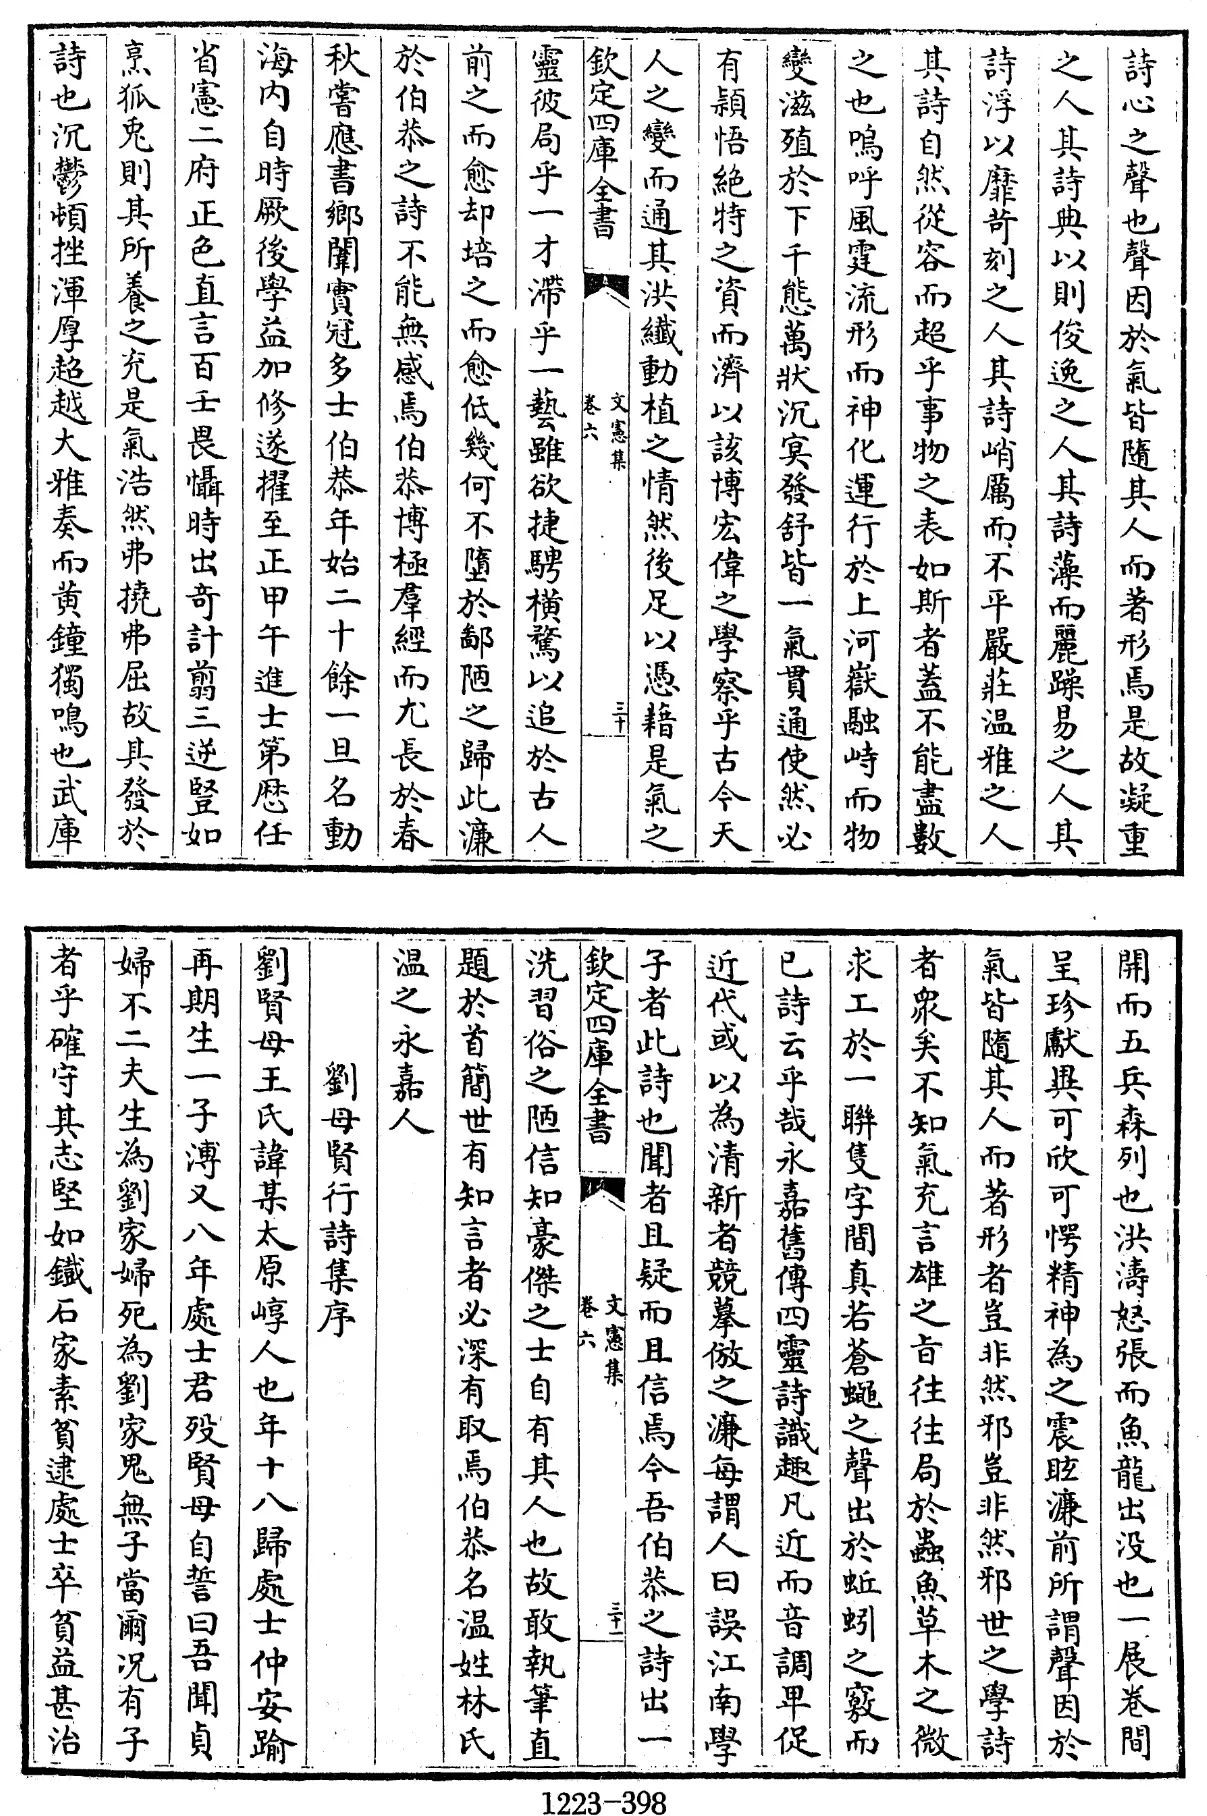 詩心之聲也聲因於氣皆隨其人而著形焉是故凝重
之人其詩典以則俊逸之人其詩藻而麗躁易之人其
詩浮以靡苛刻之人其詩峭厲而不平嚴莊温雅之人
其詩自然從容而超乎事物之表如斯者蓋不能盡數
之也嗚呼風霆流形而神化運行於上河嶽融峙而物
變滋殖於下千態萬狀沉冥發舒皆一氣貫通使然必
有穎悟絶特之資而濟以該博宏偉之學察乎古今天
人之變而通其洪纖動植之情然後足以憑藉是氣之
欽定四庫全書
文憲集
卷六
三十
靈彼局乎一才滯乎一藝雖欲捷騁横騖以追於古人
前之而愈却培之而愈低幾何不墮於鄙陋之歸此濂
於伯恭之詩不能無感焉伯恭博極羣經而尤長於春
秋嘗應書鄉闈實冠多士伯恭年始二十餘一旦名動
海内自時厥後學益加修遂擢至正甲午進士第歴任
省憲二府正色直言百壬畏懾時出竒計翦三逆豎如
烹狐兎則其所養之充是氣浩然弗撓弗屈故其發於
詩也沉鬱頓挫渾厚超越大雅奏而黄鐘獨鳴也武庫
開而五兵森列也洪濤怒張而魚龍出没也一展巻間
呈珍獻異可欣可愕精神為之震眩濂前所謂聲因於
氣皆隨其人而著形者豈非然邪豈非然邪世之學詩
者衆矣不知氣充言雄之旨往往局於蟲魚草木之微
求工於一聯隻字間真若蒼蠅之聲出於蚯蚓之竅而
已詩云乎哉永嘉舊傳四靈詩識趣凡近而音調卑促
近代或以為清新者競摹倣之濂每謂人曰誤江南學
子者此詩也聞者且疑而且信焉今吾伯恭之詩出一
欽定四庫全書
文憲集
卷六
三十一
洗習俗之陋信知豪傑之士自有其人也故敢執筆直
題於首簡世有知言者必深有取焉伯恭名温姓林氏
温之永嘉人
劉母賢行詩集序
劉賢母王氏諱某太原崞人也年十八歸處士仲安踰
再期生一子溥又八年處士君歿賢母自誓曰吾聞貞
婦不二夫生為劉家婦死為劉家鬼無子當爾况有子
者乎確守其志堅如鐵石家素貧逮處士卒貧益甚治
1223-398